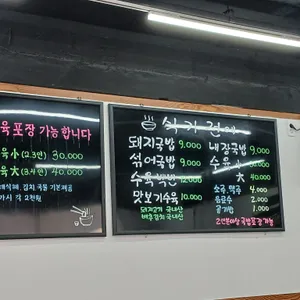 육 포장 가능합니다
육 小 (2.3인) 30.000
육 大 (3.4인) 40.000
식사전에
돼지국밥 9.000
섞어국밥 9.000
수육백반 12.000
맛보기수육 10.000
돼지고기 국내산
배추김치 국내산
내장국밥 9.000
수육 小
大 40.000
소주, 맥주 4.000
음료수 2.000
공기밥 1.000
2인분이상 국밥포장 가능